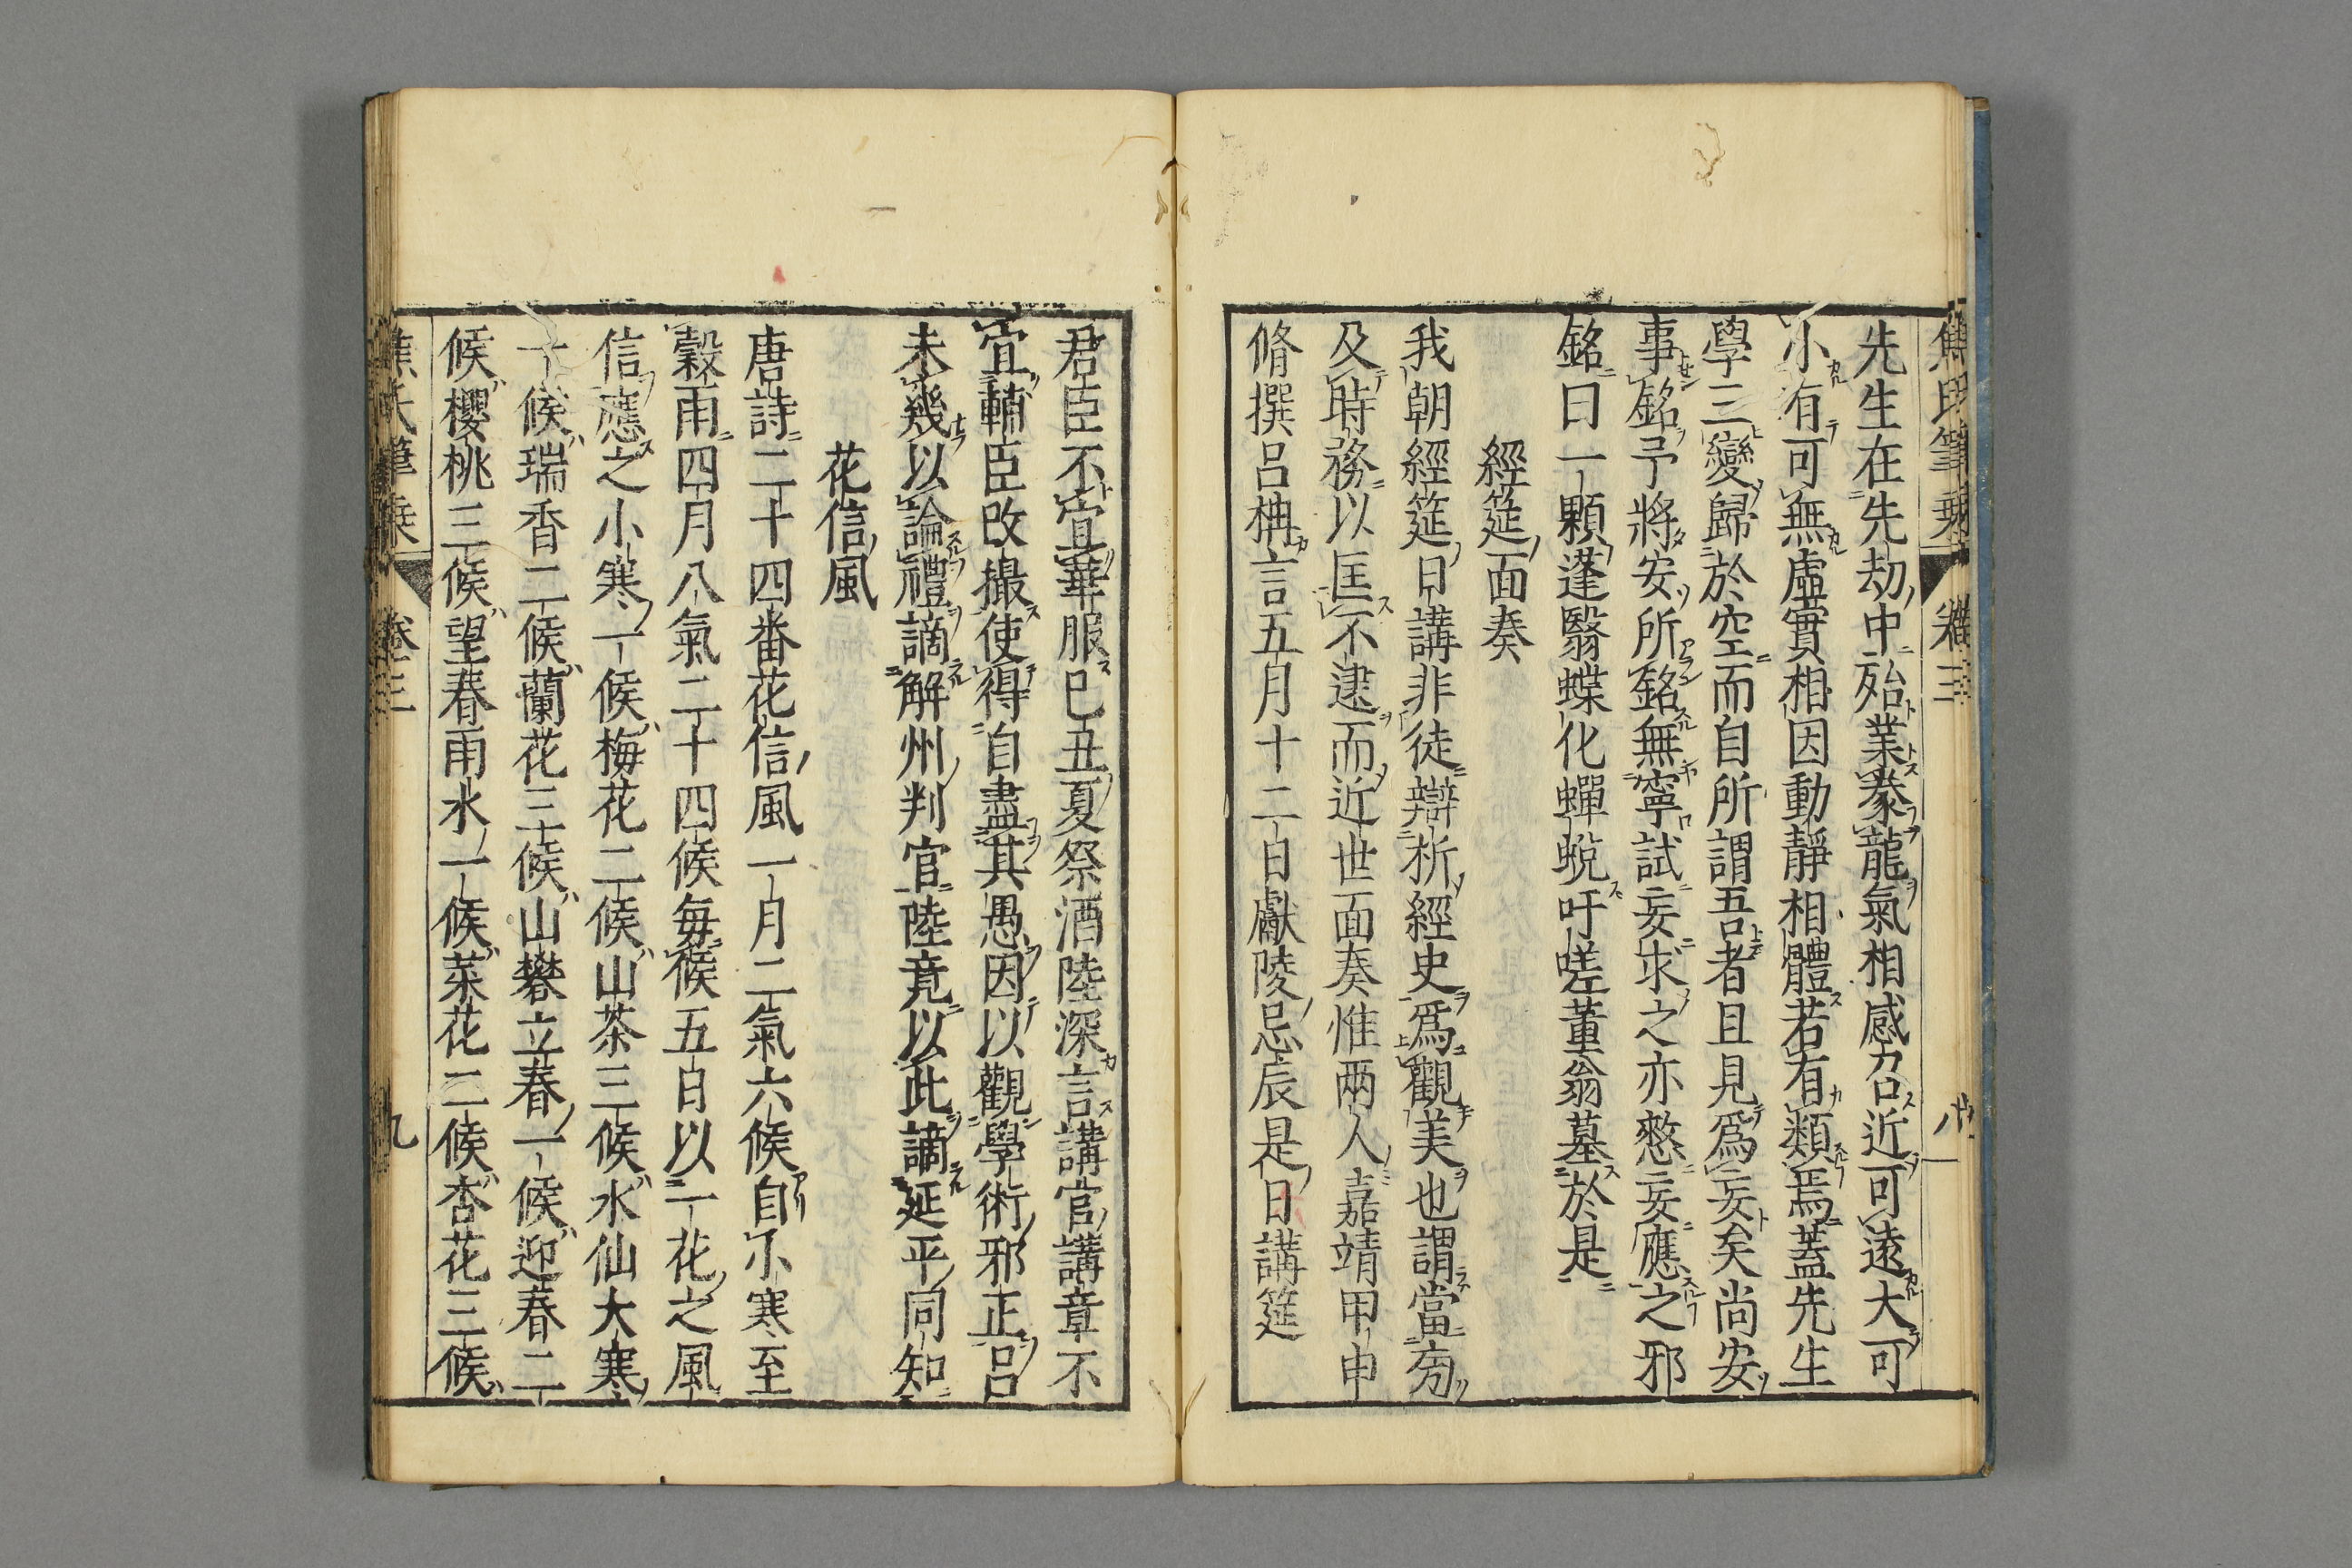 焦氏筆乗 卷三 八
先生在先劫中殆業豢龍氣相感召近可遠大可
小有可無虛實相因動靜相體若有類焉蓋先生
學三變歸於空而自所謂吾者且見爲妄矣尚安
事銘予將安所銘無寧試妄求之亦憗妄應之邪
銘曰一顆蓬翳蝶化蟬蛻吁嗟董翁墓於是
經筵面奏
我朝經筵日講非徒辯析經史爲觀美也謂當旁
及時務以匡不逮而近世面奏惟兩人嘉靖甲申
脩撰呂柟言五月十二日獻陵忌辰是日講筵
君臣不宜華服已丑夏祭酒陸深言講官講章不
宜輔臣改撮使得自盡其愚因以觀學術邪正呂
未幾以論禮謫解州判官陸竟以此謫延平同知
花信風
唐詩二十四番花信風一月二氣六候自小寒至
穀雨四月八氣二十四候每候五日以一花之風
信應之小寒一候梅花二候山茶三候水仙大寒
一候瑞香二候蘭花三候山礬立春一候迎春二
候櫻桃三候望春雨水一候菜花二候杏花三候
焦氏筆乗 卷三 九